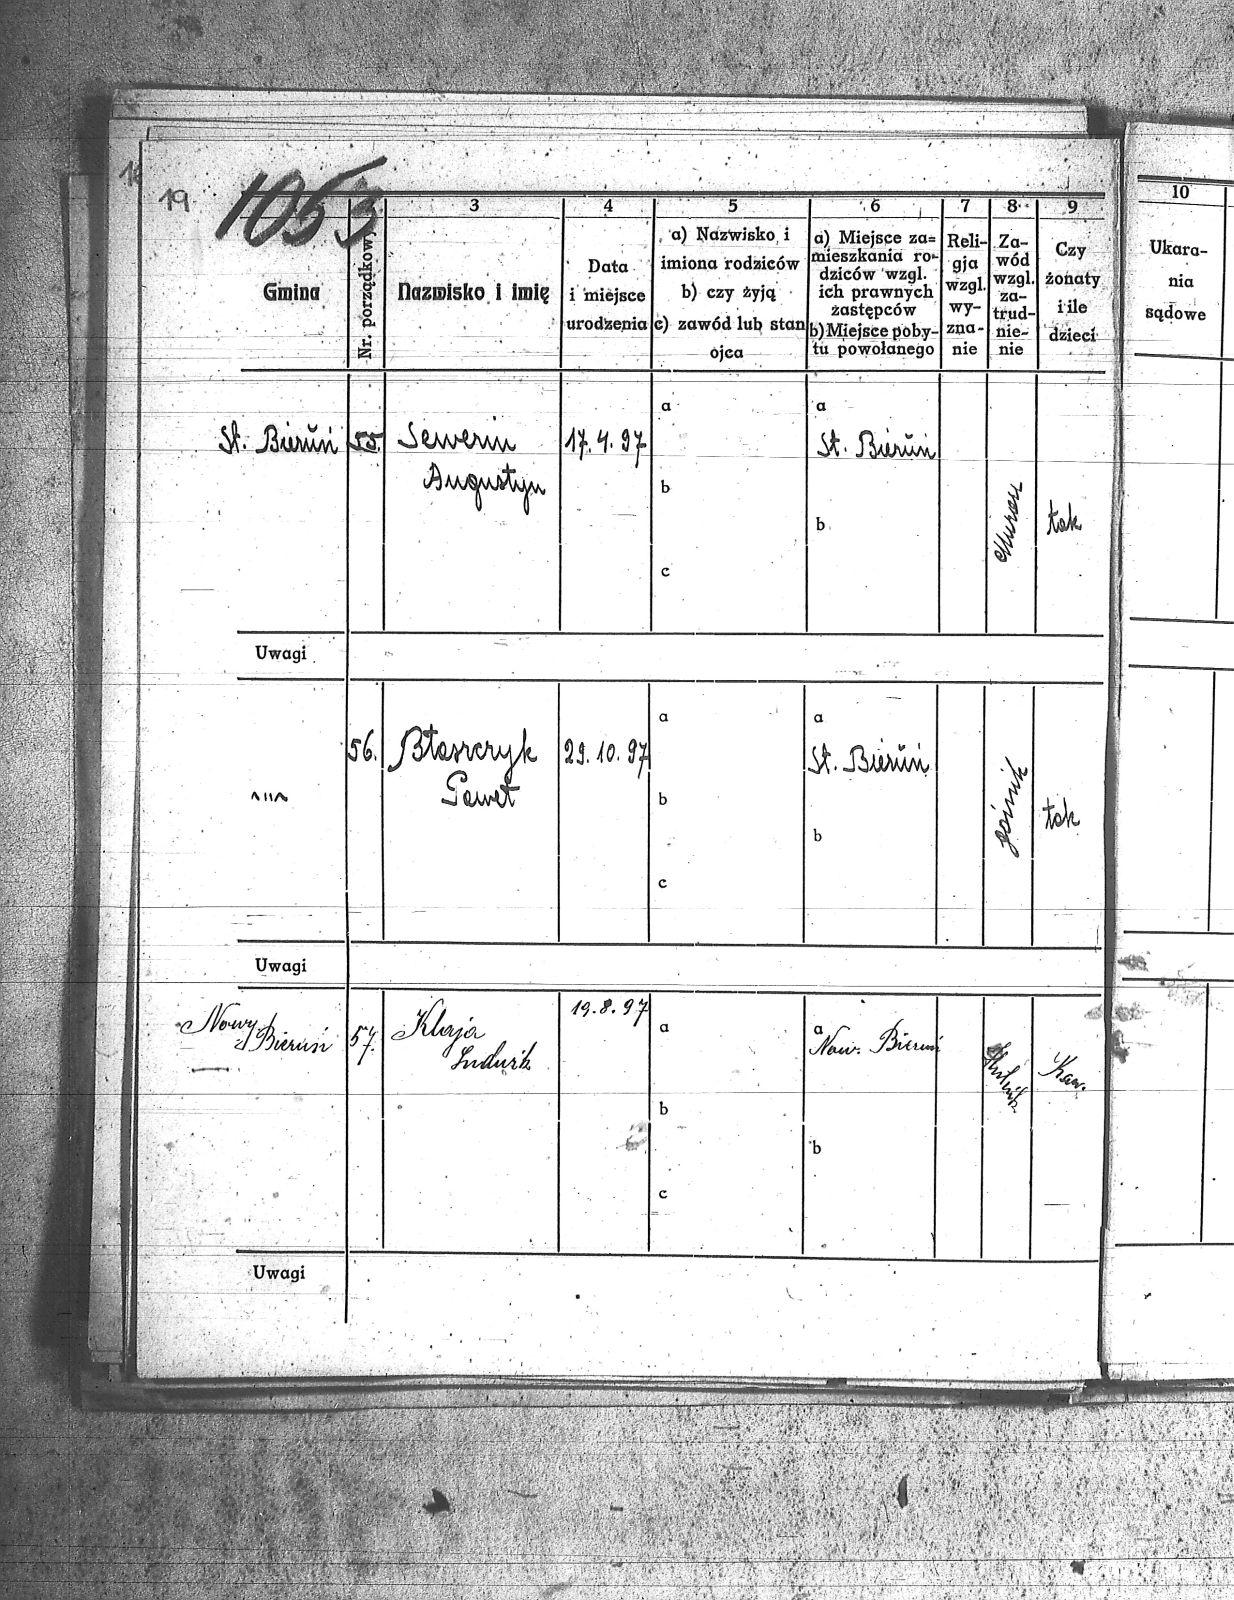 19
1053
3
4
5
6
7
8
9
10
Gmina
Nr. porządkowy
Nazwisko i imię
Data
i miejsce
urodzenia
a) Nazwisko i
imiona rodziców
b) czy żyją
c) zawód lub stan
ojca
a) Miejsce za=
mieszkania ro-
dziców wzgl.
ich prawnych
zastępców
b) Miejsce poby-
tu powołanego
Reli-
gja
wzgl.
wy-
zna-
nie
Za-
wód
wzgl.
za-
trud-
nie-
nie
Czy
żonaty
i ile
dzieci
Ukara-
nia
sądowe
St. Bieruń
55.
Sewerin
Augustyn
17.4.97
a
b
c
a
St. Bieruń
b
Murarz
tak
Uwagi
56.
Błaszczyk
Paweł
29.10.97
a
b
c
a
St. Bieruń
b
górnik
tak
Uwagi
Nowy
Bieruń
57.
Klaja
Ludwik
19.8.97
a
b
c
a
Now. Bieruń
b
Kaw.
Uwagi